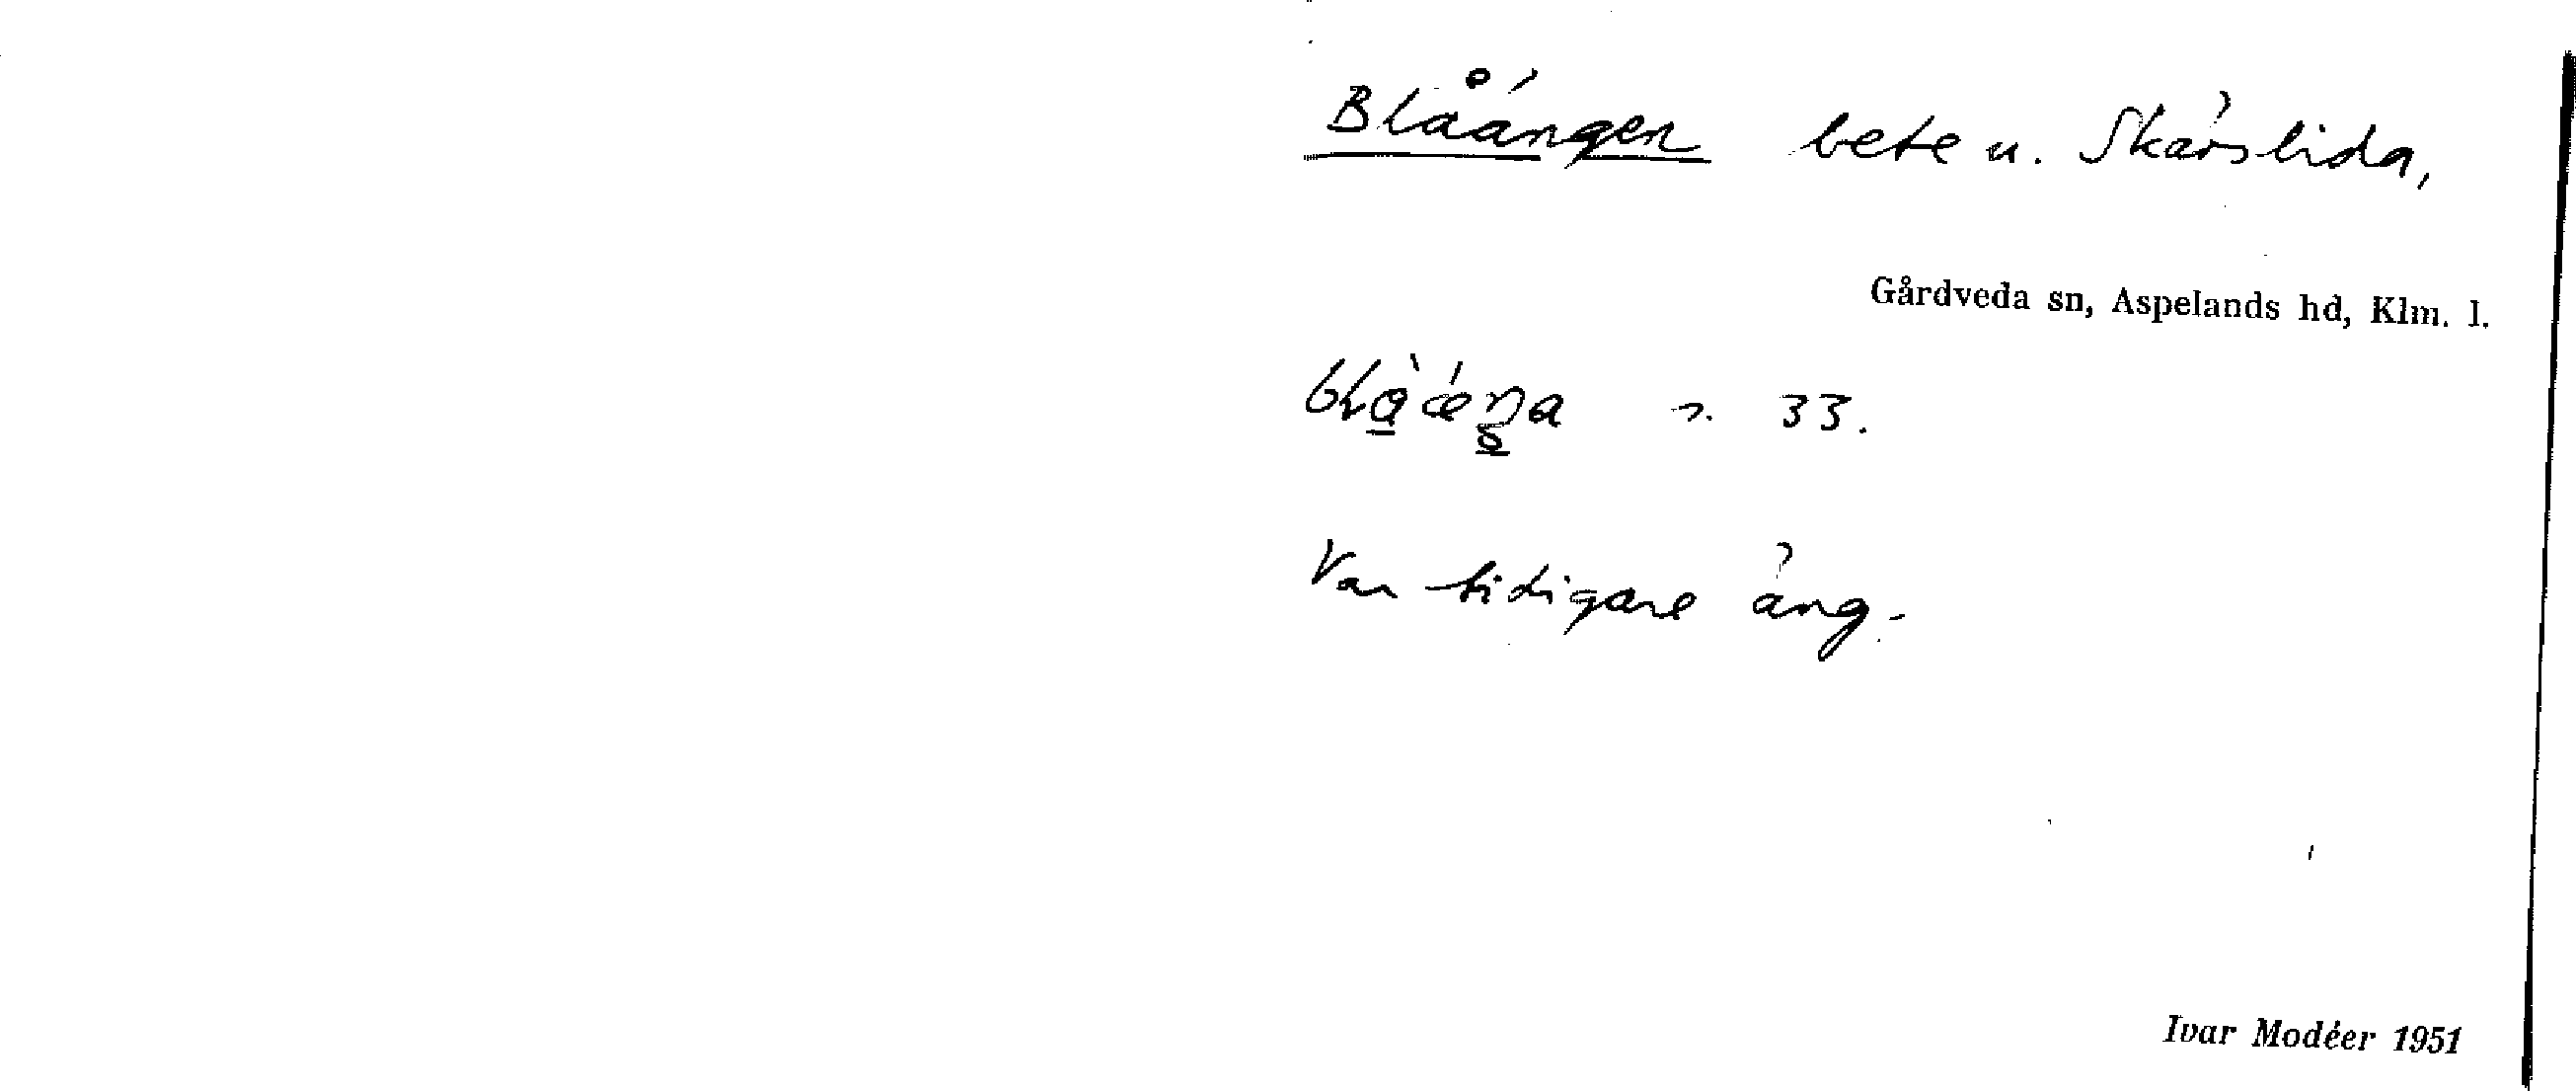 Blåängen bete u. Skärslida,
Gårdveda sn, Aspelands hd, Klm. l.
33.
Var tidigare äng.
Ivar Modéer 1951